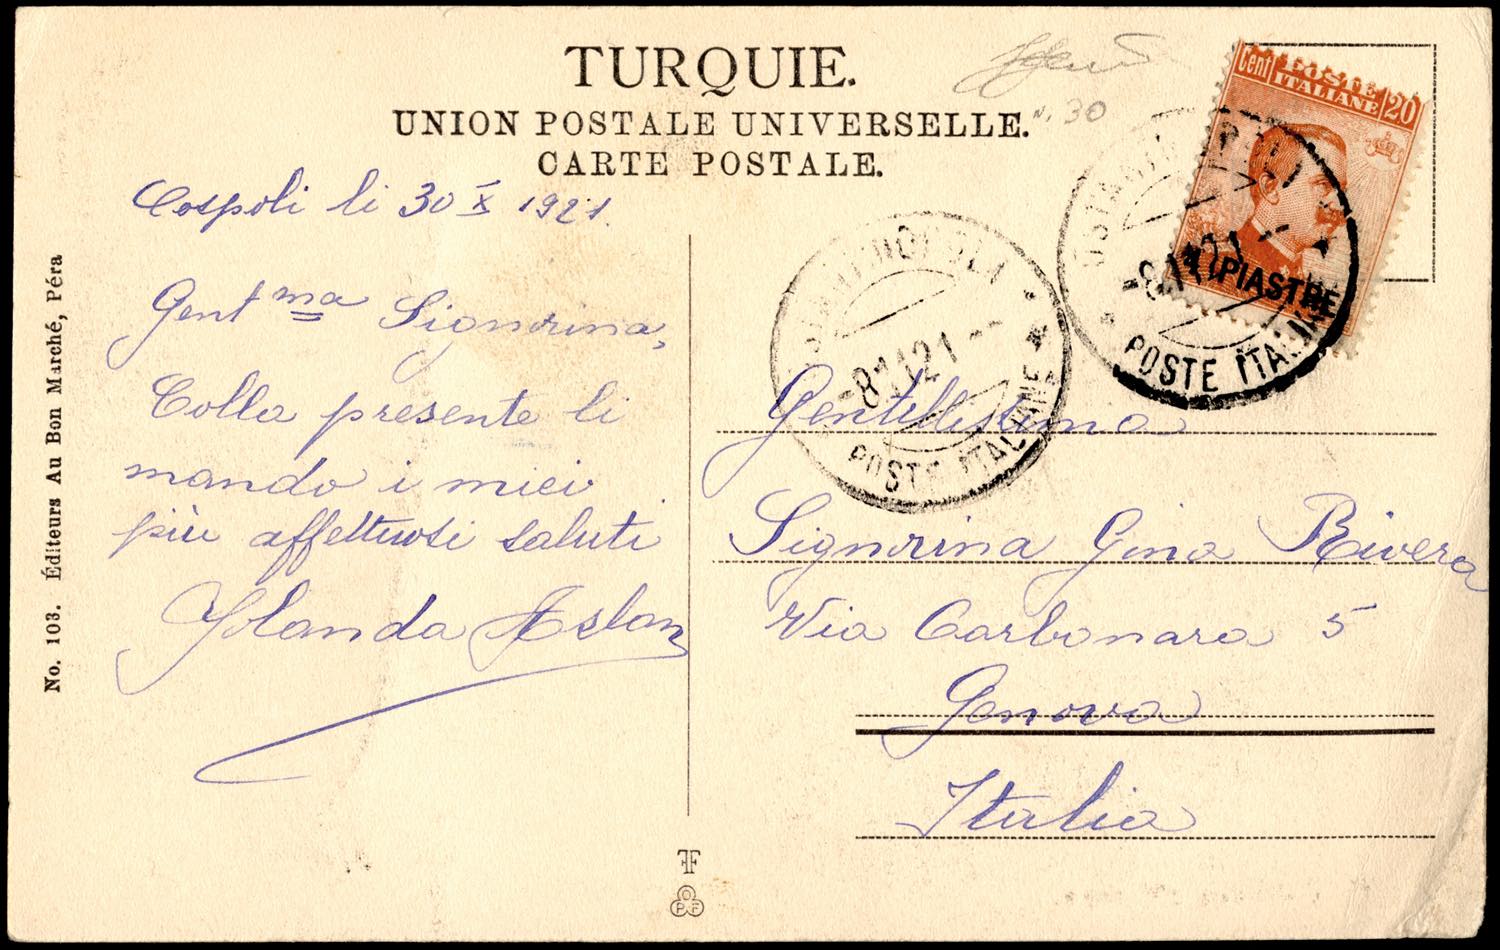 TURQUIE.
UNION POSTALE UNIVERSELLE.
CARTE POSTALE.
N. 30
Cospoli li 30 X 1921.
Gent ma Signorina,
Colla presente li
mando i miei
più affettuosi saluti
Yolanda Aslan
No. 103. Éditeurs Au Bon Marché, Péra
Cent POSTE ITALIANE 20
1 PIASTRE
COSTANTINOPOLI
-8.11.21--
POSTE ITALIANE
COSTANTINOPOLI
-8.11.21--
POSTE ITALIANE
Gentilissima
Signorina Gina Rivera
Via Carbonara 5
Genova
Italia
FF
OPF